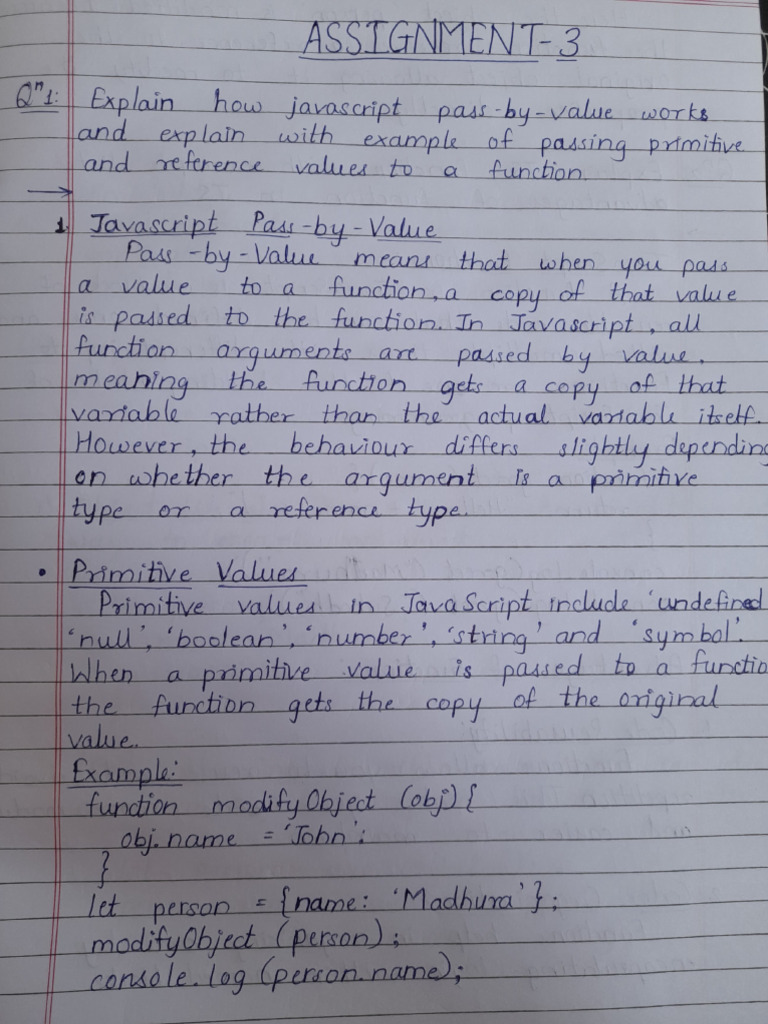 ASSIGNMENT-3
Qⁿ1: Explain how javascript pass-by-value works
and explain with example of passing primitive
and reference values to a function.
→
1. Javascript Pass-by-Value
Pass-by-Value means that when you pass
a value to a function, a copy of that value
is passed to the function. In Javascript, all
function arguments are passed by value,
meaning the function gets a copy of that
variable rather than the actual variable itself.
However, the behaviour differs slightly depending
on whether the argument is a primitive
type or a reference type.
• Primitive Values
Primitive values in JavaScript include 'undefined
'null', 'boolean', 'number', 'string' and 'symbol'.
When a primitive value is passed to a functio
the function gets the copy of the original
value.
Example:
function modifyObject (obj) {
obj.name = 'John';
}
let person = {name: 'Madhura'};
modifyObject (person);
console.log (person.name);